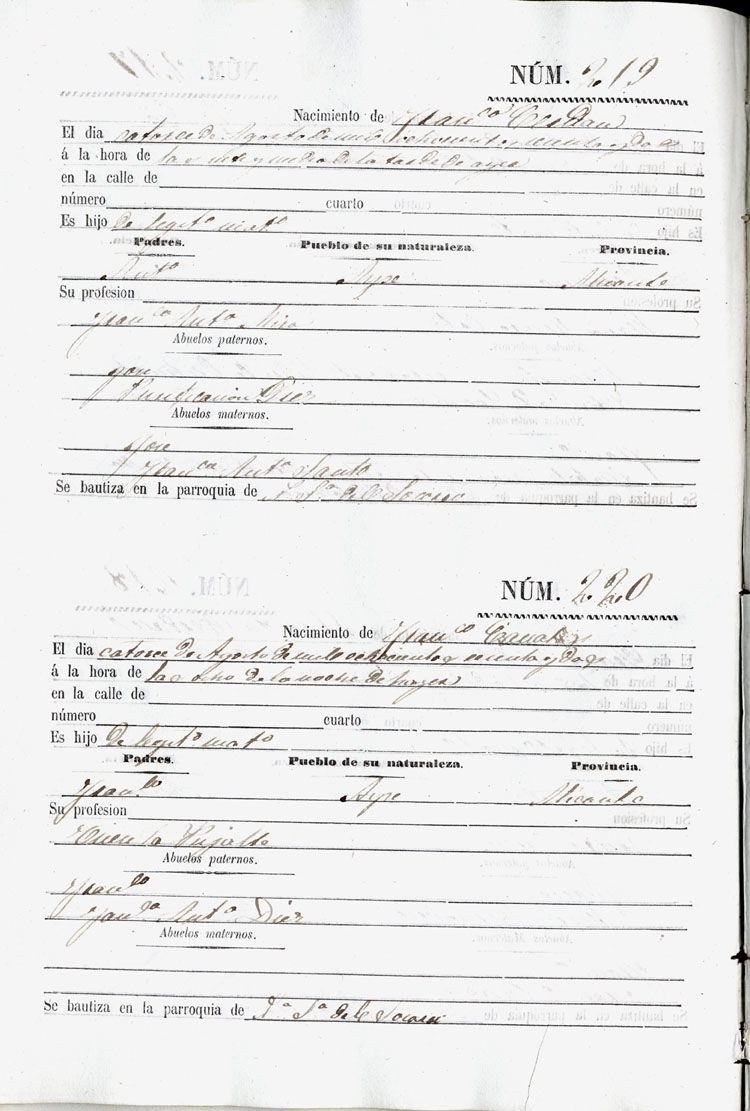 NÚM. 219
Nacimiento de Fran.co Cerdan
El dia catorce de Agosto de mil ochocientos y dos
á la hora de la siete y media de la tarde de ayer
en la calle de
número cuarto
Es hijo de legit.o mat.o
Padres. Pueblo de su naturaleza. Provincia.
Ant.o Aspe Alicante
Su profesion
Fran.ca Ant.a Miro
Abuelos paternos.
Purificacion Diez
Abuelos maternos.
Jose
Fran.ca Ant.a
Se bautiza en la parroquia de N.a S.a del Socorro
NÚM. 220
Nacimiento de Fran.co
El dia catorce de Agosto de mil ochocientos y dos
á la hora de las ocho de la noche de
en la calle de
número cuarto
Es hijo de legit.o mat.o
Padres. Pueblo de su naturaleza. Provincia.
Fran.co Aspe Alicante
Su profesion
Vicenta Pujalte
Abuelos paternos.
Fran.co
Ant.a Diez
Abuelos maternos.
Se bautiza en la parroquia de N.a S.a del Socorro